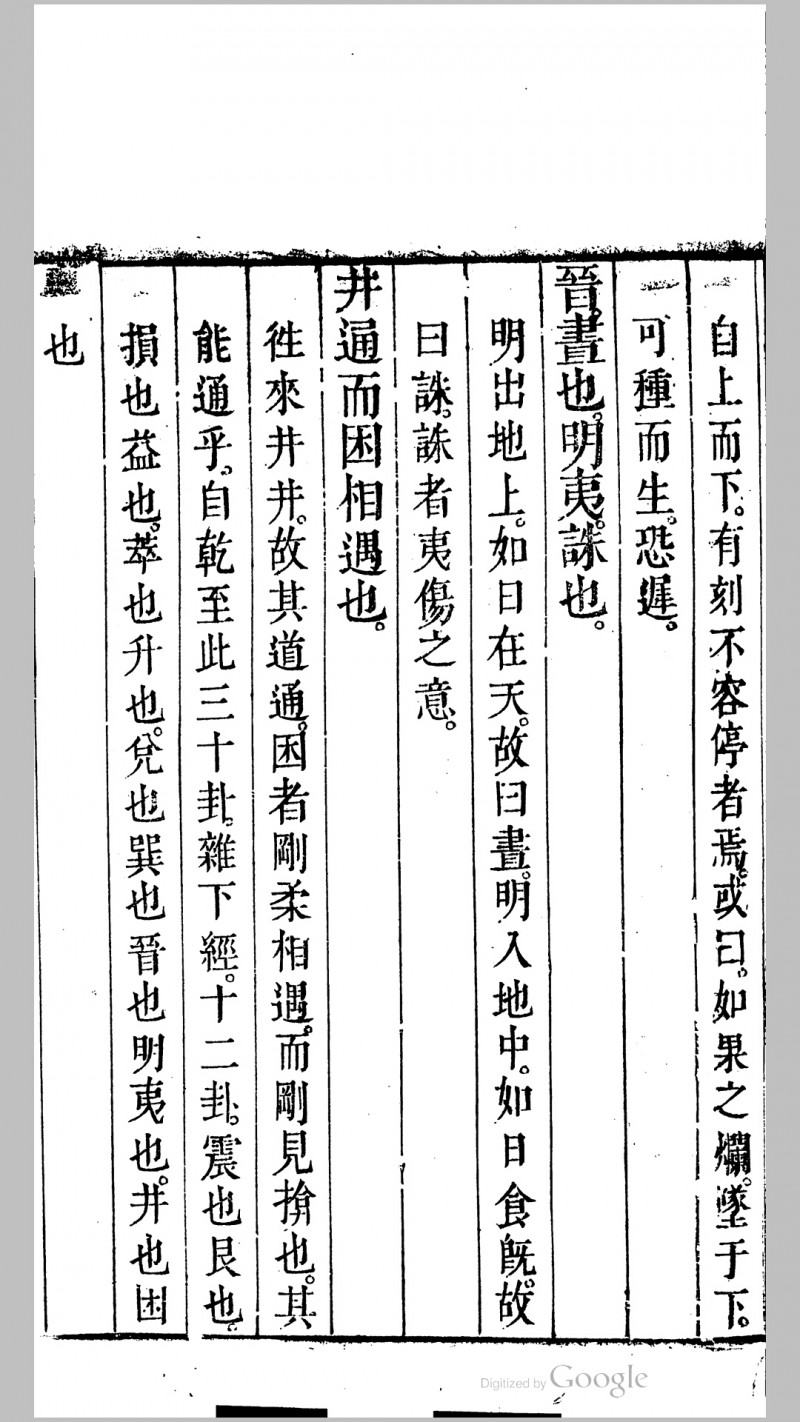 自上而下。有刻不容停者焉。或曰。如果之爛。墜于下。
可種而生。恐遲。
晉。晝也。明夷。誅也。
明出地上。如日在天。故曰晝。明入地中。如日食旣。故
曰誅。誅者夷傷之意。
井通而困相遇也。
徃來井井。故其道通。困者剛柔相遇。而剛見揜也。其
能通乎。自乾至此三十卦。雜下經。十二卦。震也艮也。
損也益也。萃也升也。兌也巽也晉也明夷也。井也困
也
Digitized by Google